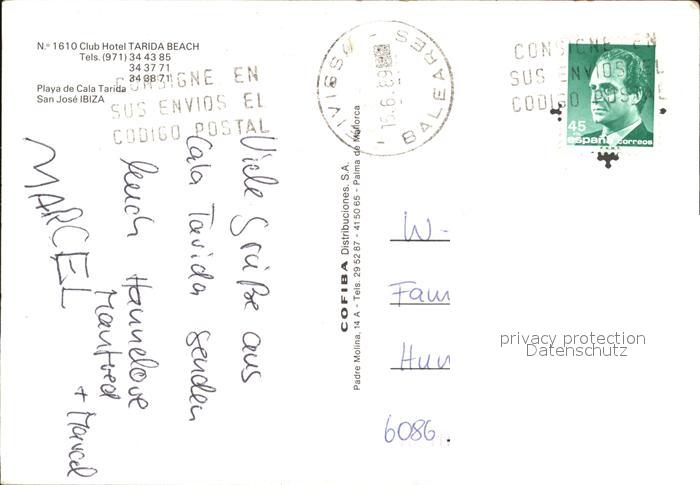 N.º 1610 Club Hotel TARIDA BEACH
Tels. (971) 34 43 85
34 37 71
34 38 71
Playa de Cala Tarida
San José IBIZA
CONSIGNE EN
SUS ENVIOS EL
CODIGO POSTAL
BALEARES
15.6.89
CONSIGNE EN
SUS ENVIOS EL
CODIGO POSTAL
45
españa correos
Viele Grüße aus
Cala Tarida senden
Euch Hannelore
Manfred
+ Marcel
MARCEL
COFIBA Distribuciones, S.A.
Padre Molina, 14 A - Tels: 29 52 87 - 41 50 65 - Palma de Mallorca
W-
Fam
Hun
6086
privacy protection
Datenschutz